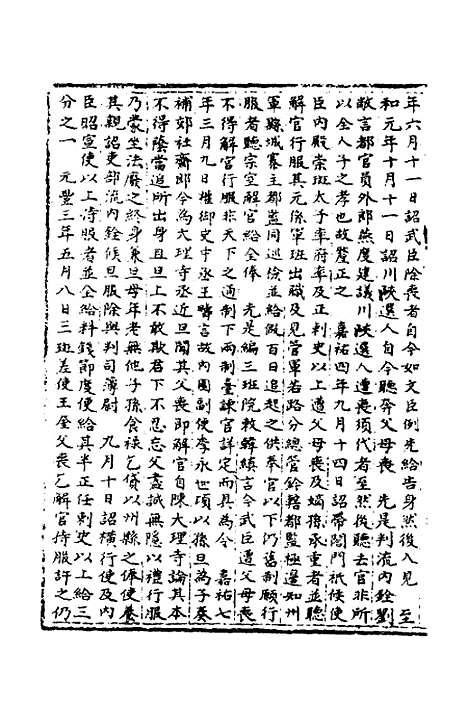 年六月十一日詔武臣除喪者自今如文臣例先給告身然後入見　至
和元年十月十一日詔川陝選人自今聽奔父母喪　先是判流內銓劉
敞言都官員外郎燕度建議川陝選人遭喪須代者至然後聽去官非所
以全人子之孝也故釐正之　嘉祐四年九月十四日詔帶閤門祇候使
臣內殿崇班太子率府率及正刺史以上遭父母喪及嫡孫承重者並聽
解官行服其元係軍班出職及見管軍若路分總管鈐轄都監極邊知州
軍縣城寨主都監同巡檢並給假百日追起之供奉官以下仍舊制願行
服者聽宗室解官給全俸　先是編三班院敕韓縝言今武臣遭父母喪
不得解官行服非天下之通制下兩制臺諫官詳定而具為令　嘉祐七
年三月九日權御史中丞王疇言故內園副使李永世項以孫旦為子奏
補郊社齋郎今為大理寺丞近旦聞其父喪即解官自陳大理寺論其本
不得蔭當追所出身且旦上不敢欺君下不忍忘父盡誠無隱以禮行服
乃蒙坐法廢之終身兼旦母年老無他子孫食祿乞貸以州縣之俸使養
其親詔吏部流內銓候旦服除與判司簿尉　九月十日詔橫行使及內
臣昭宣使以上持服者並全給料錢節度使給其半正任刺史以上給三
分之一　元豐三年五月八日三班差使王全父喪乞解官持服許之仍